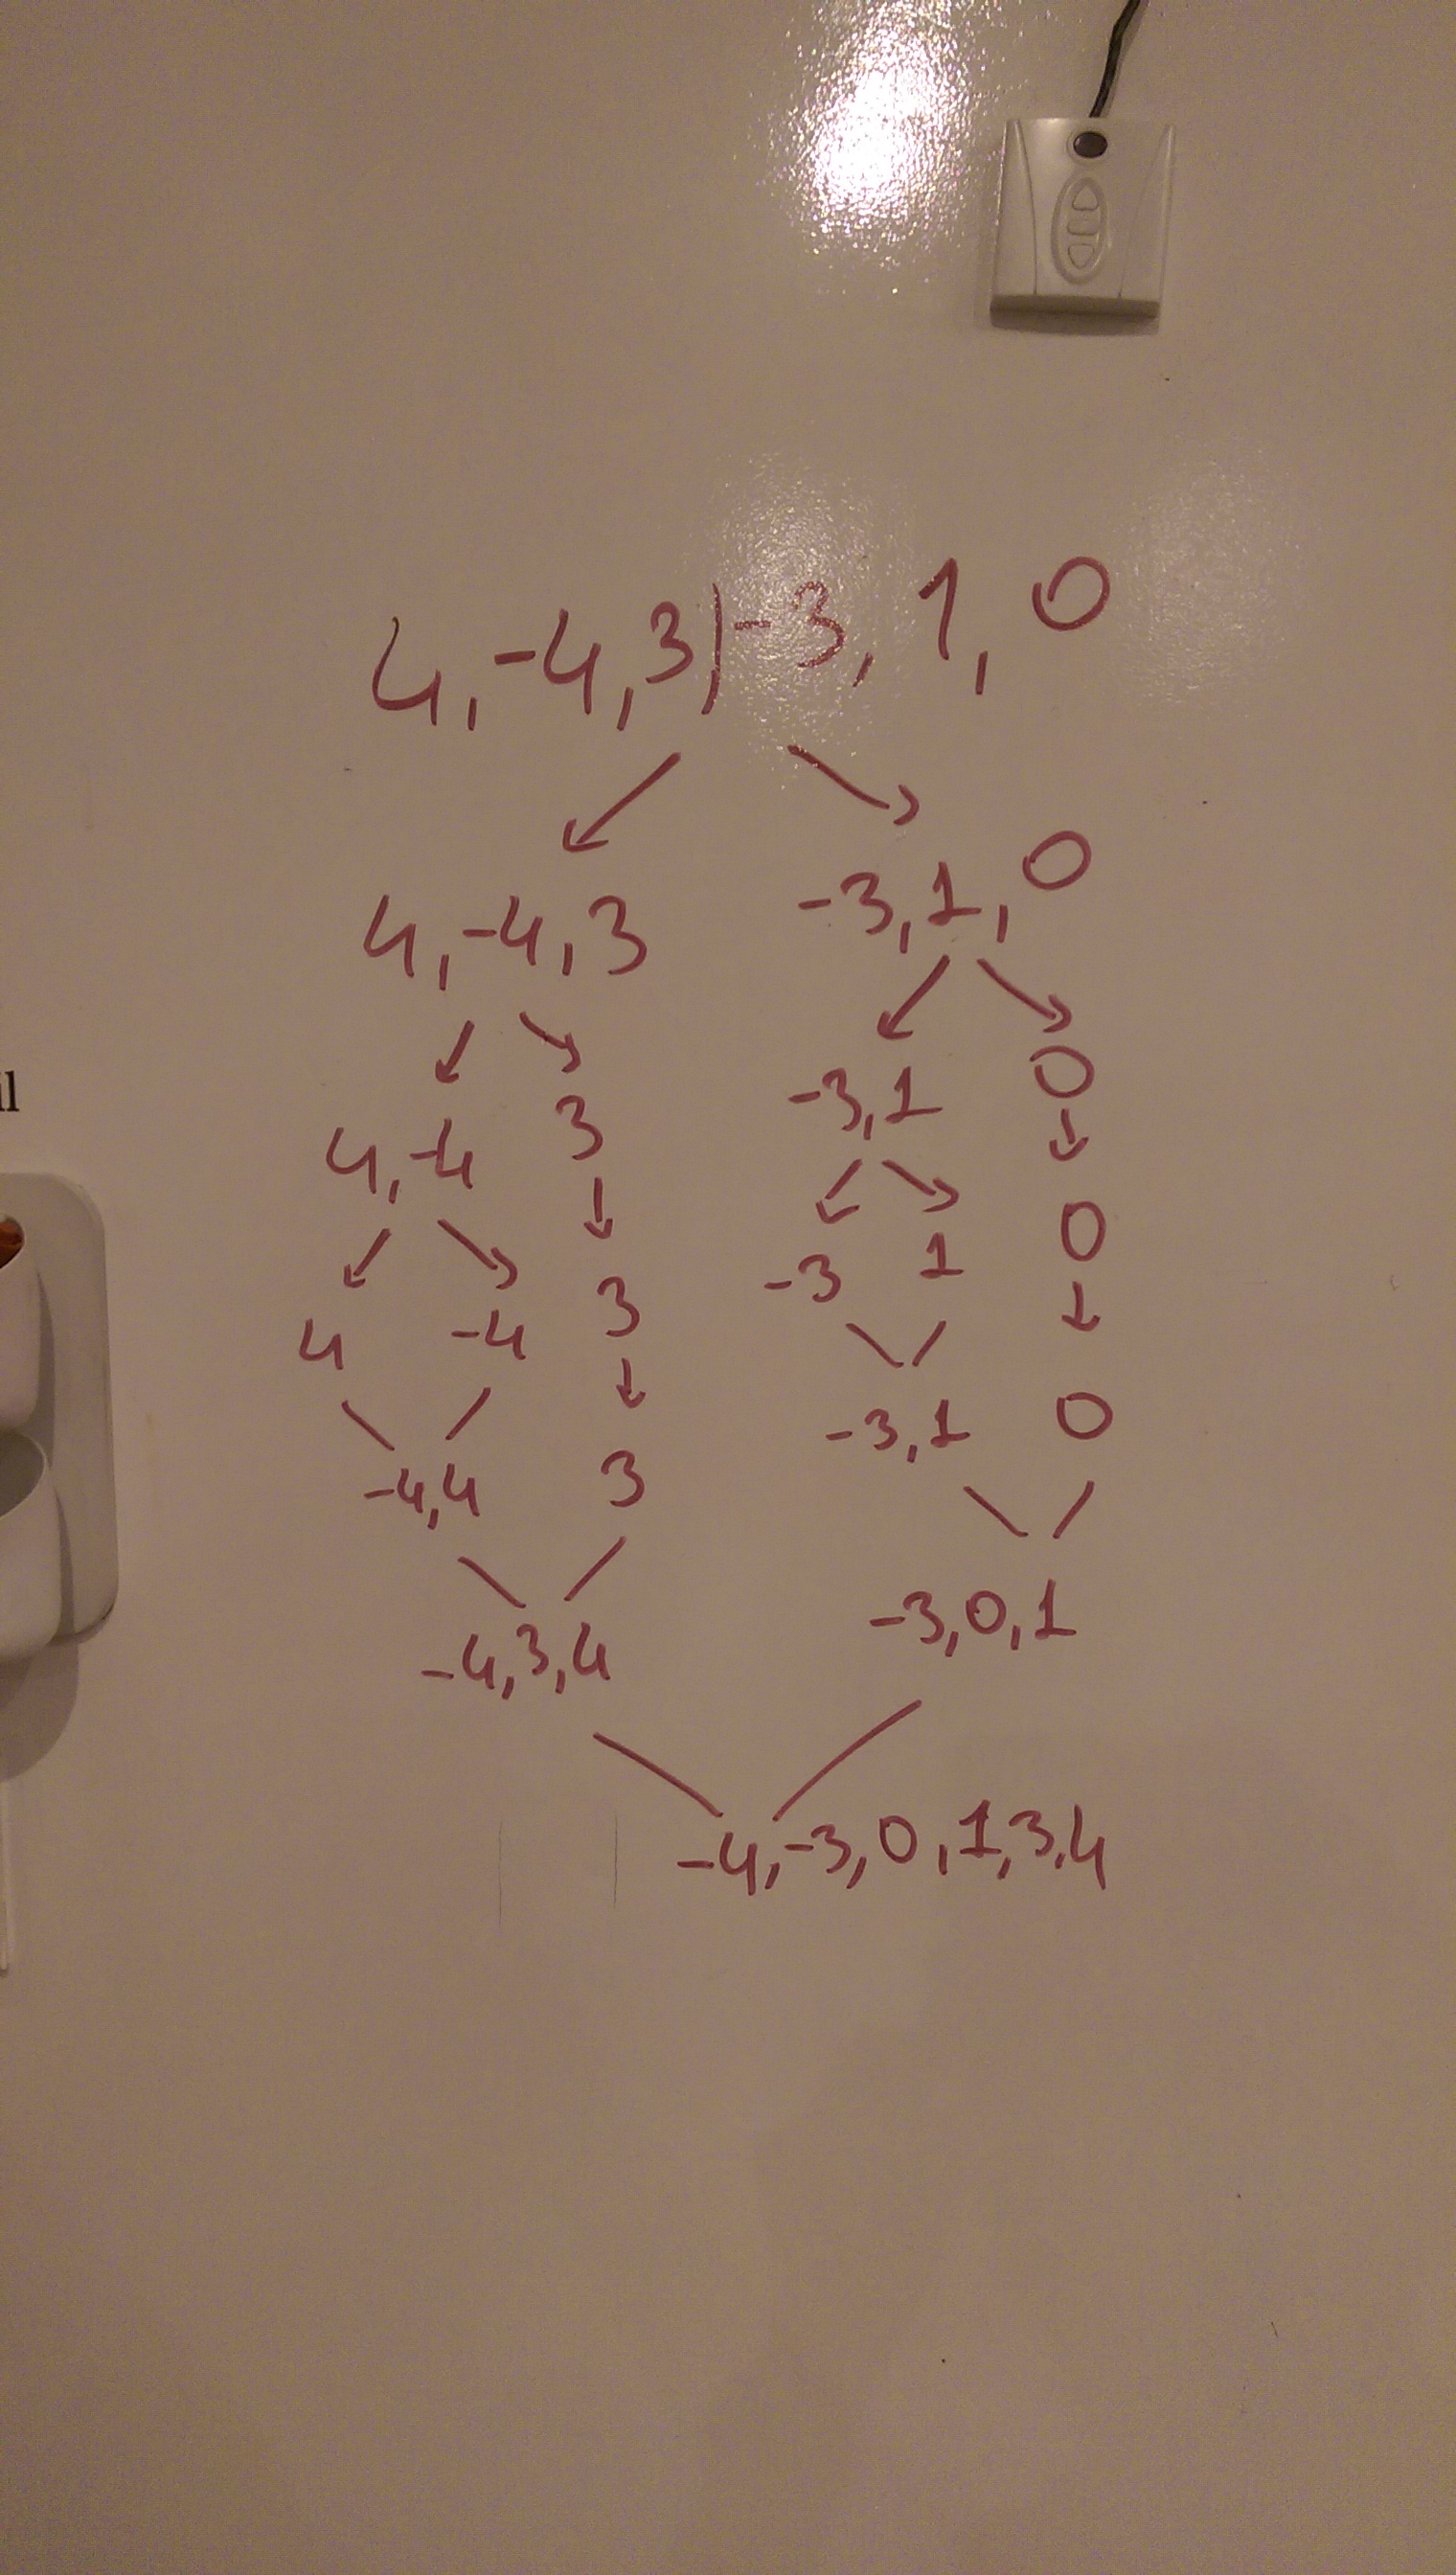 4,-4,3,-3,1,0
4,-4,3 -3,1,0
4,-4 3 -3,1 0
4 -4 3 -3 1 0
-4,4 3 -3,1 0
-4,3,4 -3,0,1
-4,-3,0,1,3,4
il